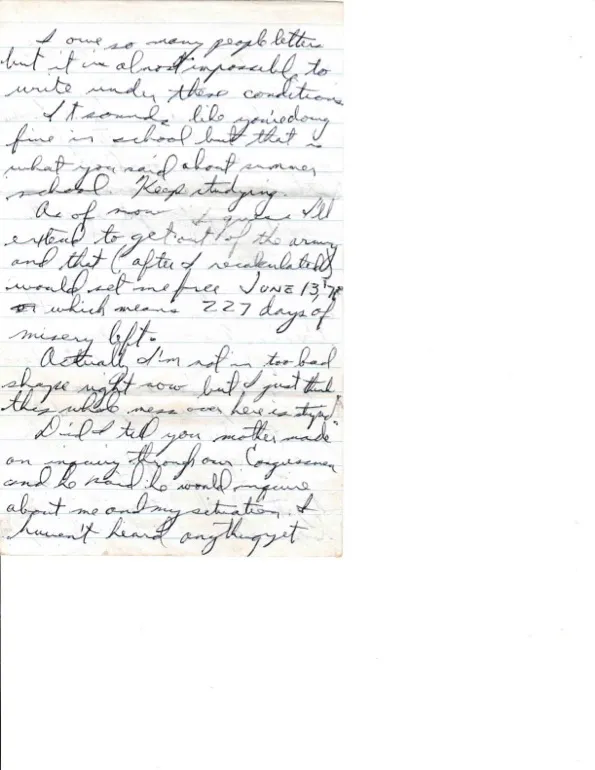 I owe so many people letters
but it is almost impossible to
write under these conditions
It sounds like you're doing
fine in school but that is
what you said about summer
school. Keep studying.
As of now I guess I'll
extend to get out of the army
and that (after I recalculated)
would set me free JUNE 13,
which means 227 days of
misery left.
Actually I'm not in too bad
shape right now but I just think
this whole mess over here is stupid
Did I tell you mother made
an inquiry through our Congressman
and he said he would inquire
about me and my situation. I
haven't heard anything yet